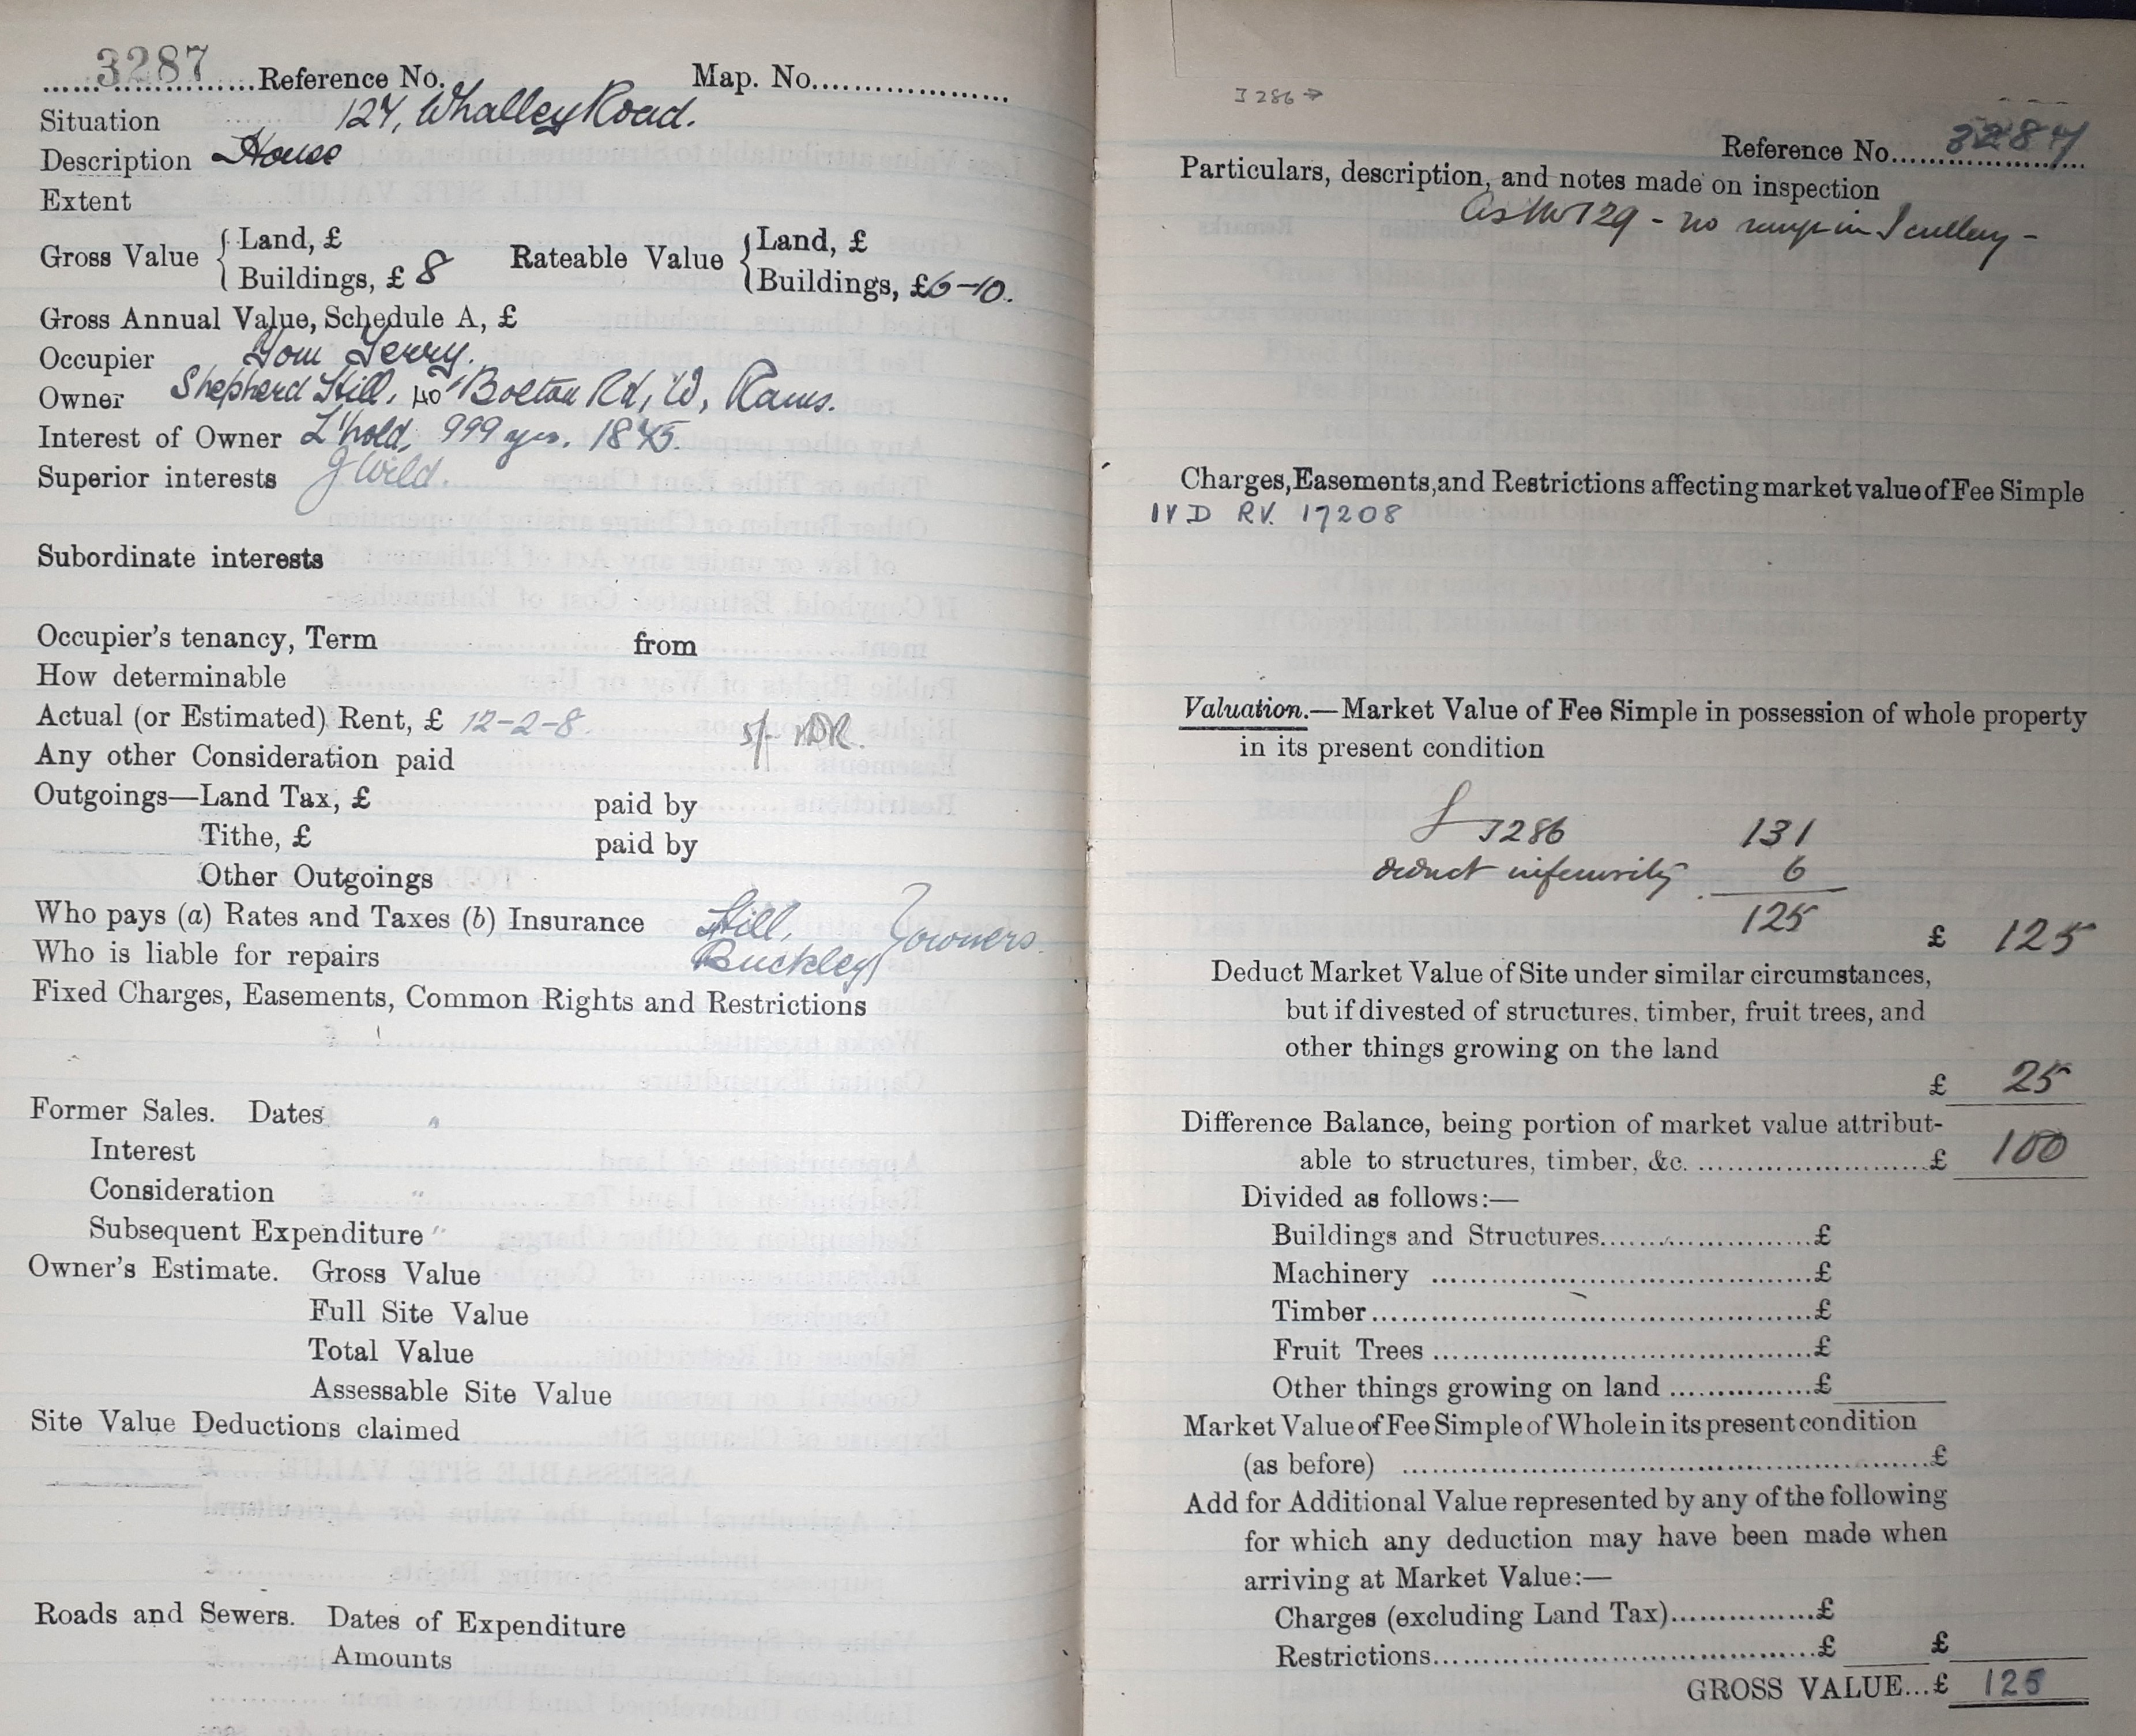 3287 Reference No. Map. No.
Situation 127, Whalley Road.
Description House
Extent
Gross Value { Land, £ Rateable Value { Land, £
Buildings, £ 8 Buildings, £6-10.
Gross Annual Value, Schedule A, £
Occupier Tom Terry.
Owner Shepherd Hill, 40 Bolton Rd, W, Rams.
Interest of Owner L'hold, 999 yrs. 1875.
Superior interests J Wild.
Subordinate interests
Occupier's tenancy, Term from
How determinable
Actual (or Estimated) Rent, £ 12-2-8 5/-
Any other Consideration paid
Outgoings—Land Tax, £ paid by
Tithe, £ paid by
Other Outgoings
Who pays (a) Rates and Taxes (b) Insurance Hill, } owners.
Who is liable for repairs Buckley
Fixed Charges, Easements, Common Rights and Restrictions
Former Sales. Dates "
Interest
Consideration "
Subsequent Expenditure "
Owner's Estimate. Gross Value
Full Site Value
Total Value
Assessable Site Value
Site Value Deductions claimed
Roads and Sewers. Dates of Expenditure
Amounts
3286 →
Reference No. 3287
Particulars, description, and notes made on inspection
As No 129 - no range in Scullery -
Charges, Easements, and Restrictions affecting market value of Fee Simple
IVD RV. 17208
Valuation.—Market Value of Fee Simple in possession of whole property
in its present condition
3286 131
deduct inferiority 6
125 £ 125
Deduct Market Value of Site under similar circumstances,
but if divested of structures, timber, fruit trees, and
other things growing on the land
£ 25
Difference Balance, being portion of market value attribut-
able to structures, timber, &c. £ 100
Divided as follows:—
Buildings and Structures £
Machinery £
Timber £
Fruit Trees £
Other things growing on land £
Market Value of Fee Simple of Whole in its present condition
(as before) £
Add for Additional Value represented by any of the following
for which any deduction may have been made when
arriving at Market Value:—
Charges (excluding Land Tax) £
Restrictions £ £
GROSS VALUE...£ 125